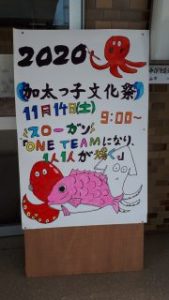 2020
加太っ子文化祭
11月14日(土)
9:00~
スローガン
「ONE TEAMになり、
1人1人が輝く」